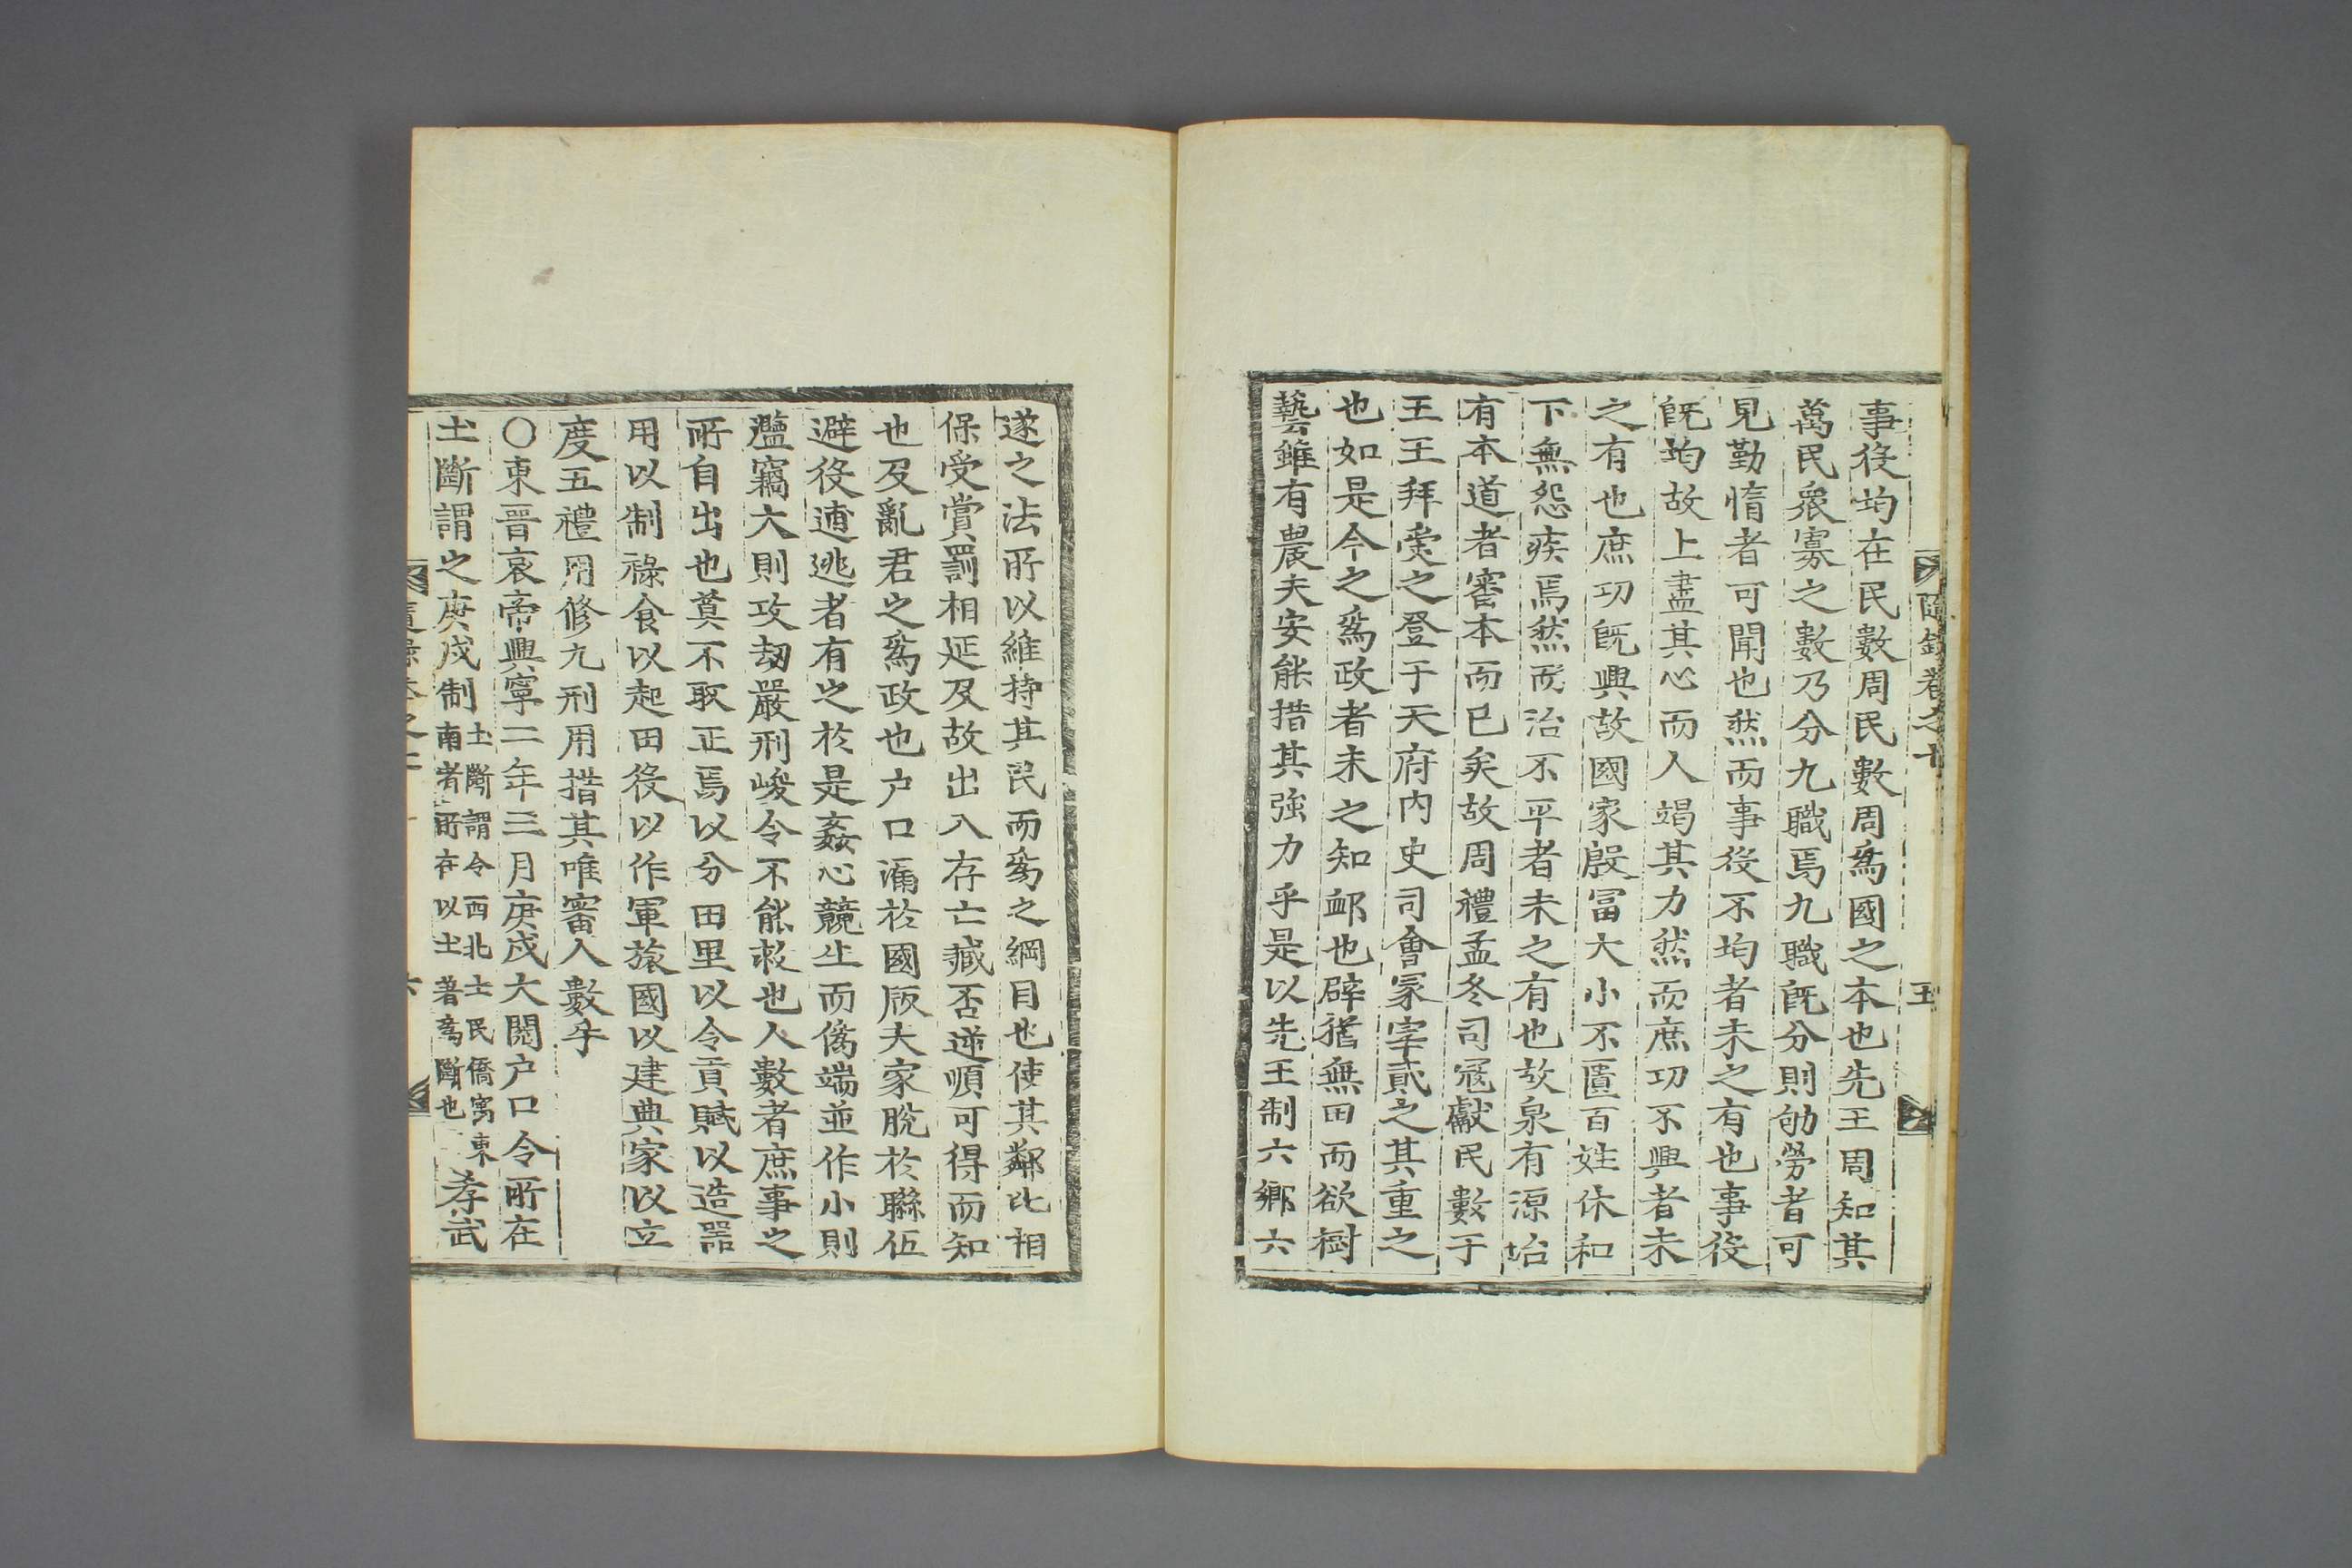 隨錄卷之十
五
事役均在民數周民數周爲國之本也先王周知其
萬民衆寡之數乃分九職焉九職旣分則劬勞者可
見勤惰者可聞也然而事役不均者未之有也事役
旣均故上盡其心而人竭其力然而庶功不興者未
之有也庶功旣興故國家殷富大小不匱百姓休和
下無怨疾焉然而治不平者未之有也故泉有源治
有本道者審本而已矣故周禮孟冬司寇獻民數于
王王拜受之登于天府內史司會冢宰貳之其重之
也如是今之爲政者未之知衃也辟猶無田而欲樹
藝雖有農夫安能措其強力乎是以先王制六鄕六
遂之法所以維持其民而爲之綱目也使其鄰比相
保受賞罰相延及故出入存亡臧否逆順可得而知
也及亂君之爲政也戶口漏於國版夫家脫於聯伍
避役逋逃者有之於是姦心競生而僞端並作小則
濫竊大則攻劫嚴刑峻令不能救也人數者庶事之
所自出也莫不取正焉以分田里以令貢賦以造器
用以制祿食以起田役以作軍旅國以建典家以立
度五禮用修九刑用措其唯審人數乎
○東晉哀帝興寧二年三月庚戌大閱戶口令所在
土斷謂之庚戌制土斷謂令西北士民僑寓東南者所在以土著爲斷也 孝武
六